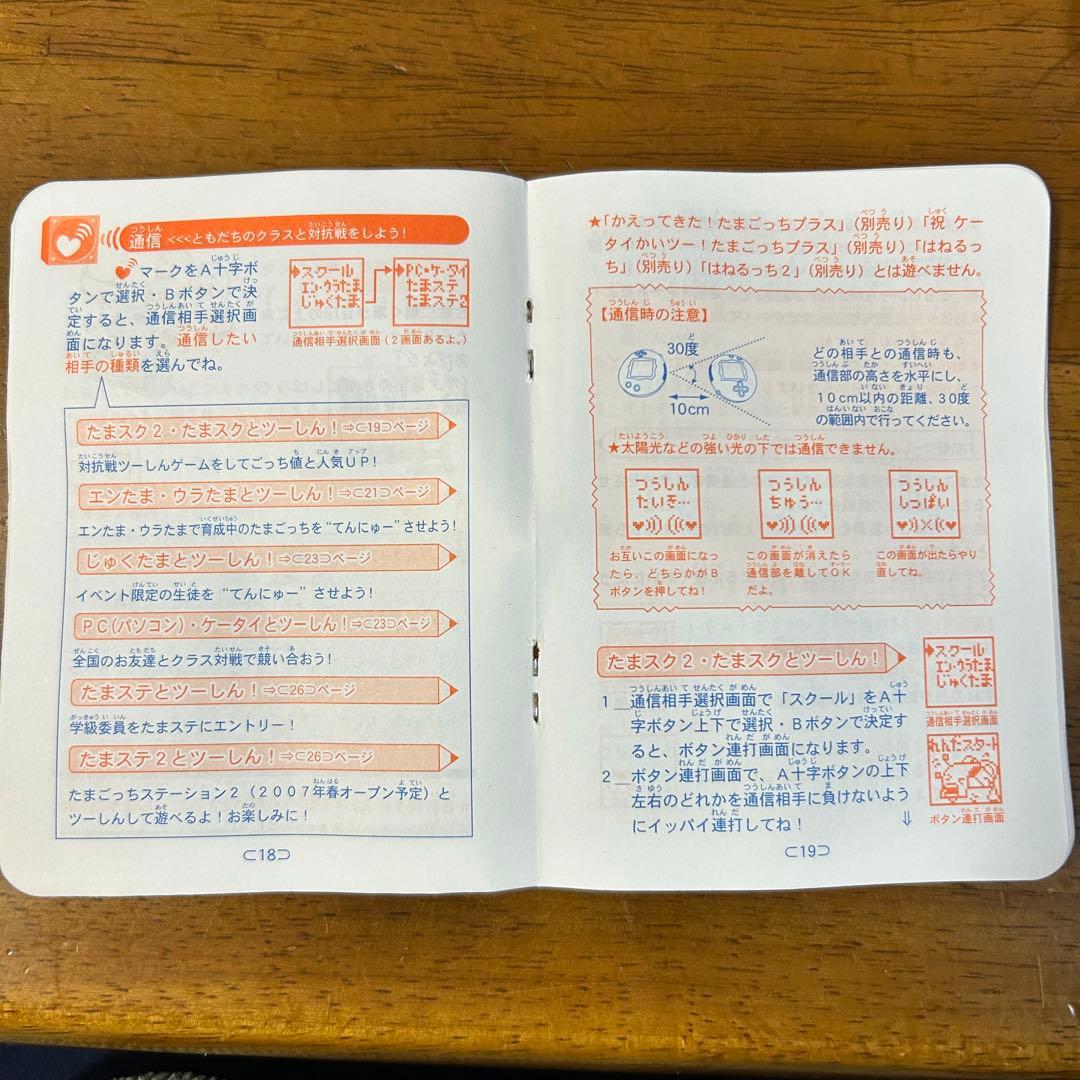 通信 <<<ともだちのクラスと対抗戦をしよう!
マークをA十字ボ
タンで選択・Bボタンで決
定すると、通信相手選択画
面になります。通信したい
相手の種類を選んでね。
スクール
エン・ウラたま
じゅくたま
PC・ケータイ
たまステ
たまステ2
通信相手選択画面(2画面あるよ。)
たまスク2・たまスクとツーしん!⇒⊂19⊃ページ
対抗戦ツーしんゲームをしてごっち値と人気UP!
エンたま・ウラたまとツーしん!⇒⊂21⊃ページ
エンたま・ウラたまで育成中のたまごっちを“てんにゅー”させよう!
じゅくたまとツーしん!⇒⊂23⊃ページ
イベント限定の生徒を“てんにゅー”させよう!
PC(パソコン)・ケータイとツーしん!⇒⊂23⊃ページ
全国のお友達とクラス対戦で競い合おう!
たまステとツーしん!⇒⊂26⊃ページ
学級委員をたまステにエントリー!
たまステ2とツーしん!⇒⊂26⊃ページ
たまごっちステーション2(2007年春オープン予定)と
ツーしんして遊べるよ!お楽しみに!
⊂18⊃
★「かえってきた!たまごっちプラス」(別売り)「祝 ケー
タイかいツー!たまごっちプラス」(別売り)「はねるっ
ち」(別売り)「はねるっち2」(別売り)とは遊べません。
【通信時の注意】
30度
10cm
どの相手との通信時も、
通信部の高さを水平にし、
10cm以内の距離、30度
の範囲内で行ってください。
★太陽光などの強い光の下では通信できません。
つうしん
たいき…
お互いこの画面になっ
たら、どちらかがB
ボタンを押してね!
つうしん
ちゅう…
この画面が消えたら
通信部を離してOK
だよ。
つうしん
しっぱい
この画面が出たらやり
直してね。
たまスク2・たまスクとツーしん!
1＿通信相手選択画面で「スクール」をA十
字ボタン上下で選択・Bボタンで決定す
ると、ボタン連打画面になります。
2＿ボタン連打画面で、A十字ボタンの上下
左右のどれかを通信相手に負けないよう
にイッパイ連打してね! ⇓
スクール
エン・ウラたま
じゅくたま
通信相手選択画面
れんだスタート
ボタン連打画面
⊂19⊃